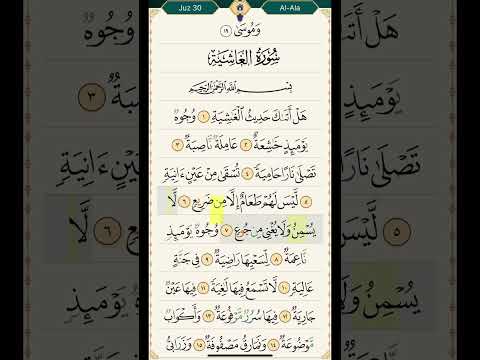 Juz 30
Al-Ala
وَمُوسَىٰ ١٩
سُورَةُ الغَاشِيَةِ
بِسْمِ ٱللَّهِ ٱلرَّحْمَٰنِ ٱلرَّحِيمِ
هَلْ أَتَىٰكَ حَدِيثُ ٱلْغَٰشِيَةِ ١ وُجُوهٌ
يَوْمَئِذٍ خَٰشِعَةٌ ٢ عَامِلَةٌ نَّاصِبَةٌ ٣
تَصْلَىٰ نَارًا حَامِيَةً ٤ تُسْقَىٰ مِنْ عَيْنٍ ءَانِيَةٍ
٥ لَّيْسَ لَهُمْ طَعَامٌ إِلَّا مِن ضَرِيعٍ ٦ لَّا
يُسْمِنُ وَلَا يُغْنِى مِن جُوعٍ ٧ وُجُوهٌ يَوْمَئِذٍ
نَّاعِمَةٌ ٨ لِّسَعْيِهَا رَاضِيَةٌ ٩ فِى جَنَّةٍ
عَالِيَةٍ ١٠ لَّا تَسْمَعُ فِيهَا لَٰغِيَةً ١١ فِيهَا عَيْنٌ
جَارِيَةٌ ١٢ فِيهَا سُرُرٌ مَّرْفُوعَةٌ ١٣ وَأَكْوَابٌ
مَّوْضُوعَةٌ ١٤ وَنَمَارِقُ مَصْفُوفَةٌ ١٥ وَزَرَابِىُّ